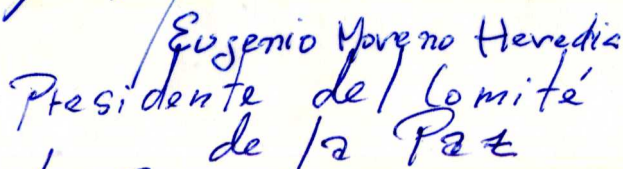 Eugenio Moreno Heredia
Presidente del Comité
de la Paz